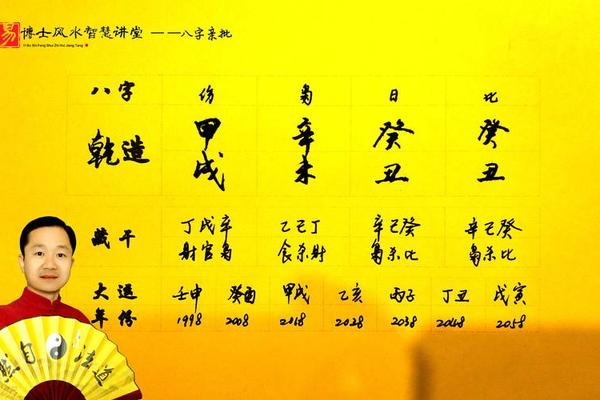 易 博士风水智慧讲堂 ——八字亲批
Yi Bo Shi Feng Shui Zhi Hui Jiang Tang
八字 伤 枭 日 比
乾造 甲 辛 癸 癸
戌 未 丑 丑
藏干 丁戊辛 乙己丁 辛己癸 辛己癸
财官枭 食杀财 枭杀比 枭杀比
大运 壬申 癸酉 甲戌 乙亥 丙子 丁丑 戊寅
年份 1998 2008 2018 2028 2038 2048 2058
然自法道